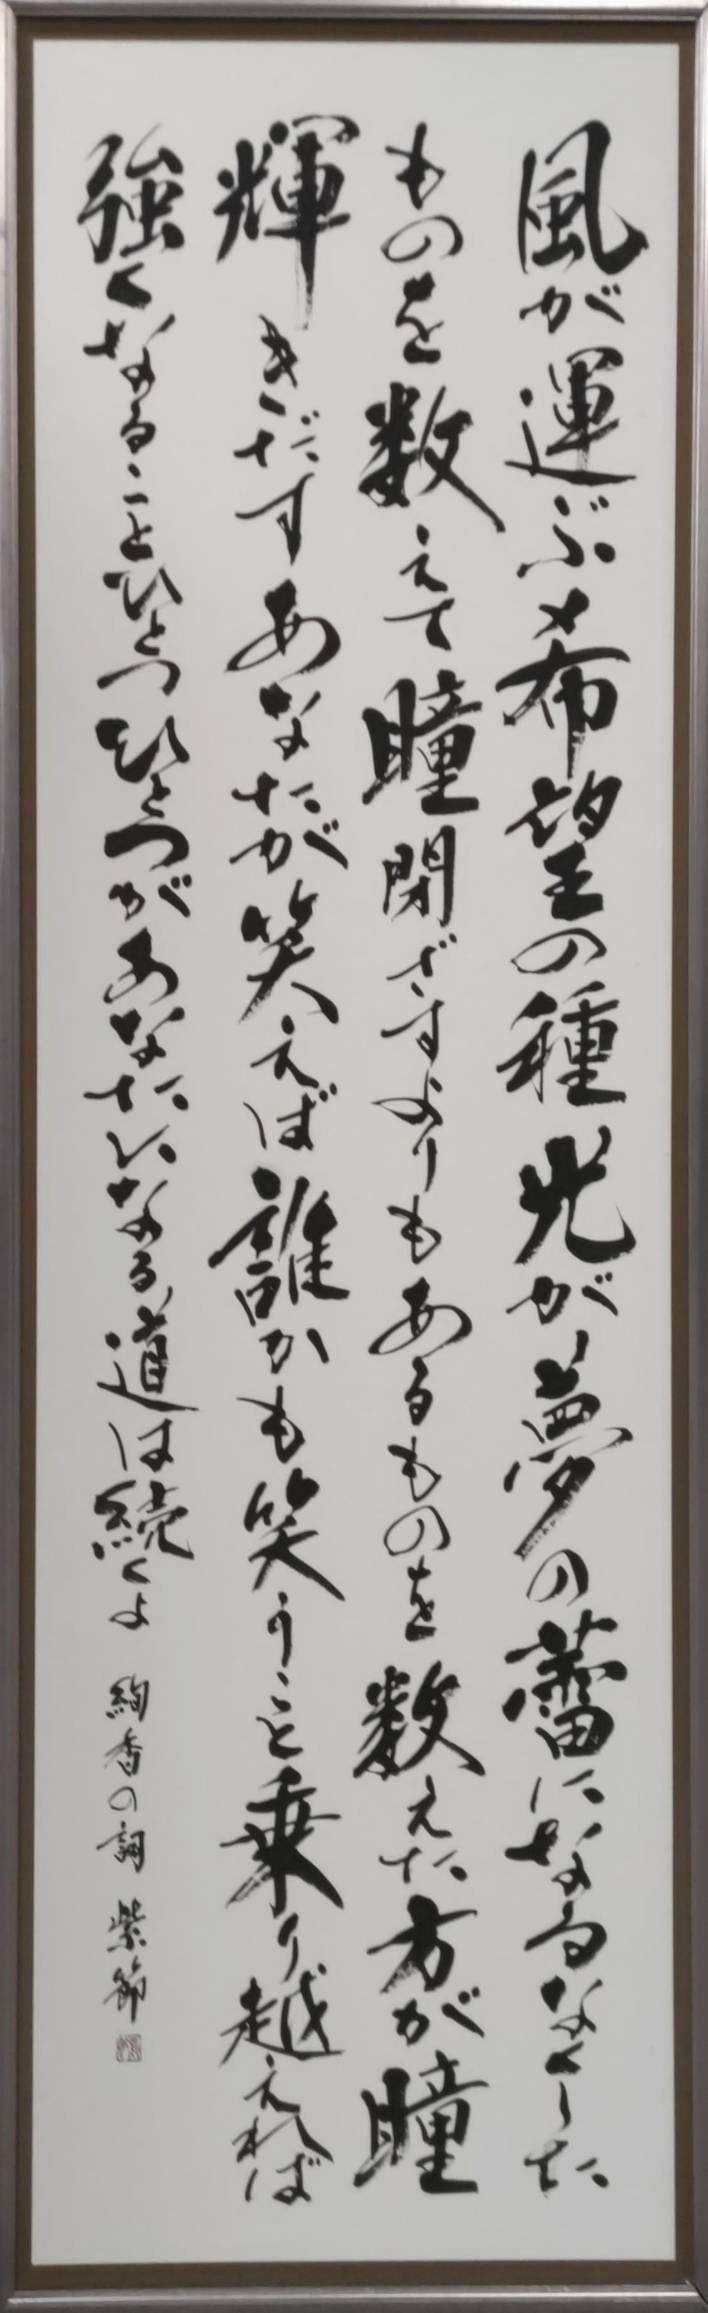 風が運ぶ希望の種光が夢の蕾になるなくした
ものを数えて瞳閉ざすよりもあるものを数えた方が瞳
輝きだすあなたが笑えば誰かも笑うこと乗り越えれば
強くなることひとつひとつがあなたになる道は続くよ 絢香の詞 紫節